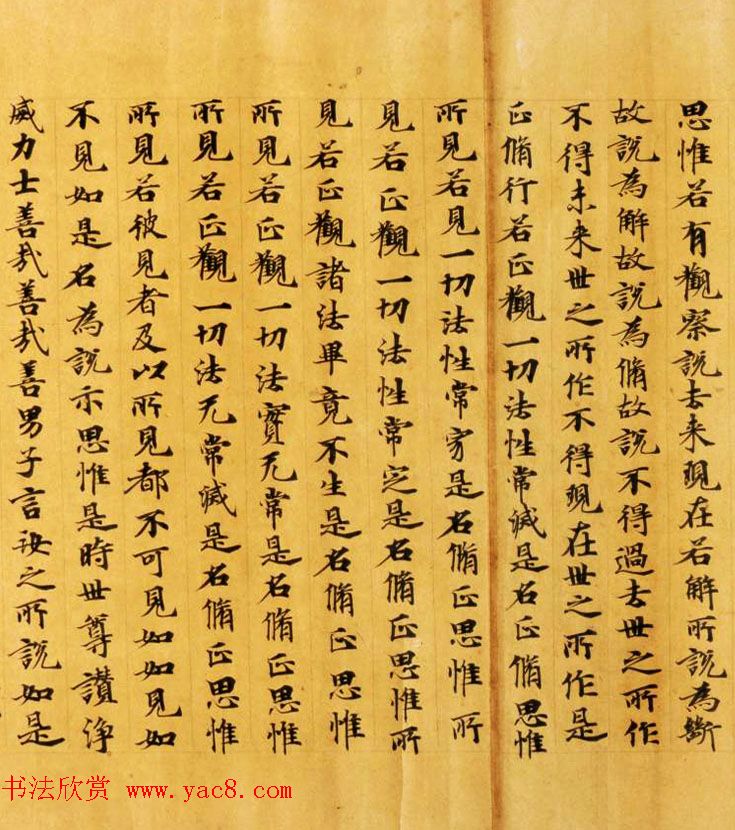 思惟若有觀察說去来現在若解所說為斷
故說為解故說為脩故說不得過去世之所作
不得未来世之所作不得現在世之所作是
正脩行若正觀一切法性常滅是名正脩思惟
所見若見一切法性常寂是名脩正思惟所
見若正觀一切法性常定是名脩正思惟所
見若正觀諸法畢竟不生是名脩正思惟
所見若正觀一切法實无常是名脩正思惟
所見若正觀一切法无常滅是名脩正思惟
所見若彼見者及以所見都不可見如如見如
不見如是名為說示思惟是時世尊讃淨
威力士善哉善哉善男子言汝之所說如是
书法欣赏 www.yac8.com